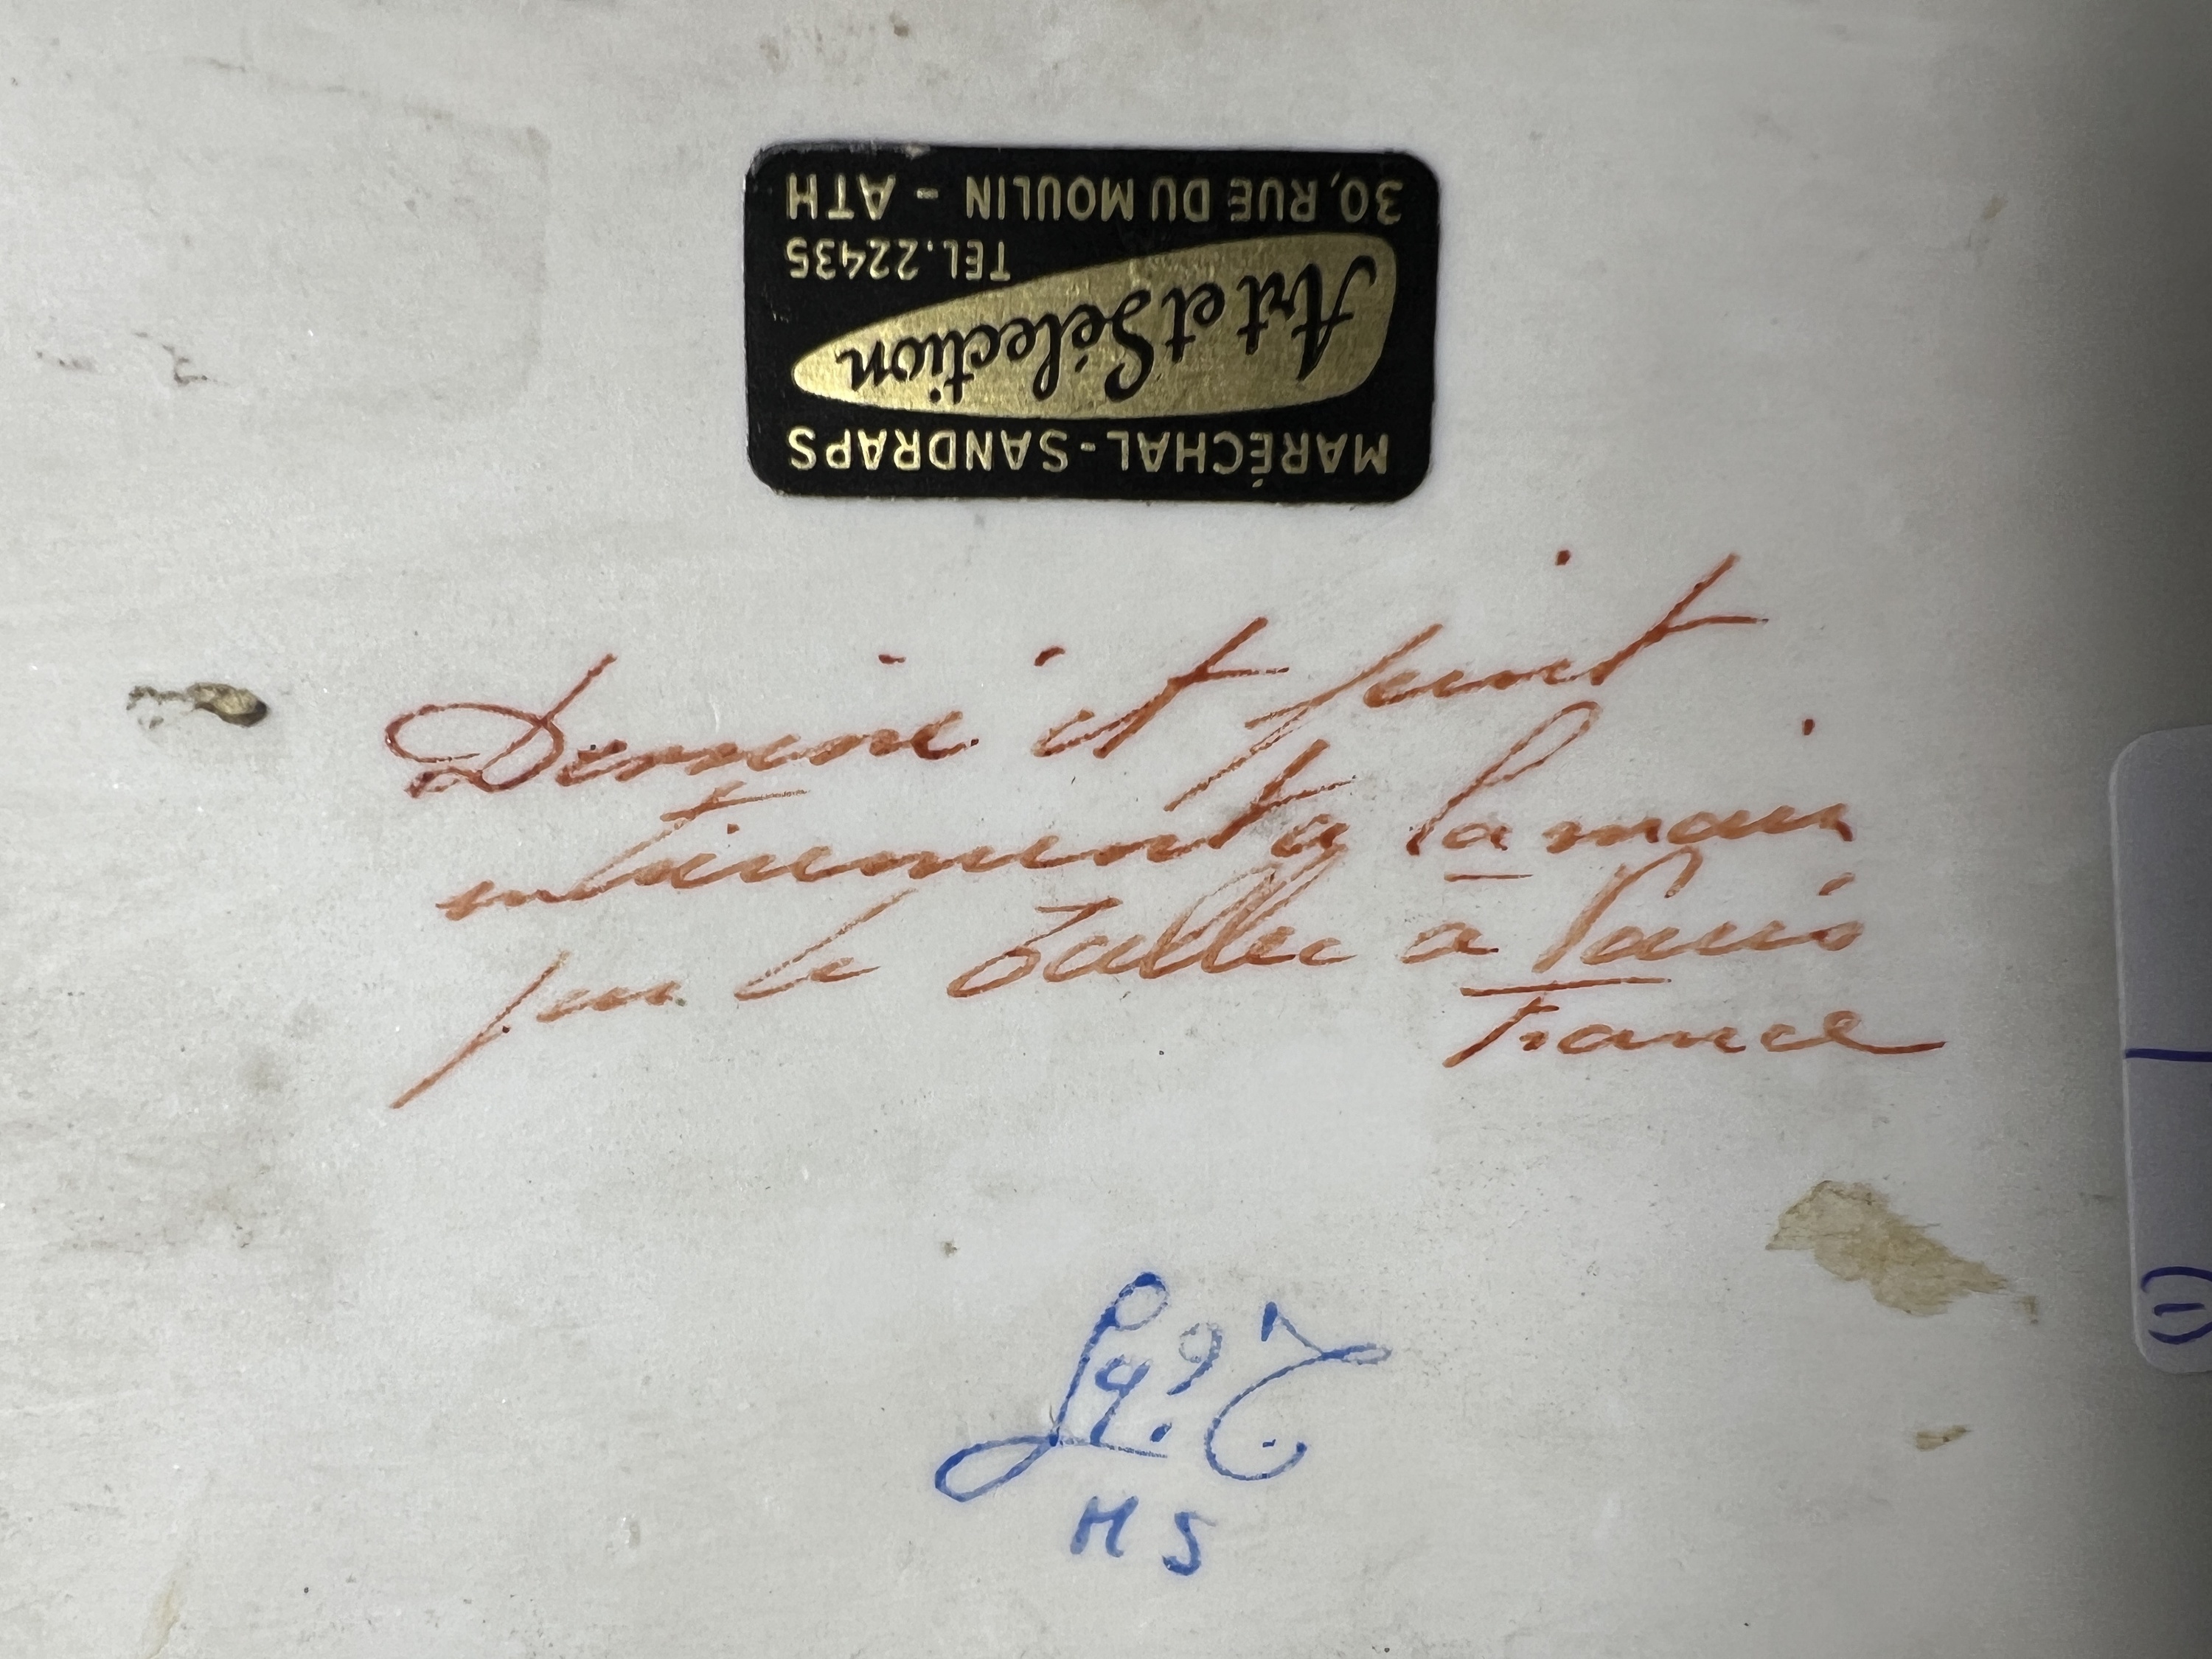 MARÉCHAL-SANDRAPS
Art et Sélection
TEL. 22435
30, RUE DU MOULIN - ATH
Dessiné et peint
entièrement à la main
par Le Tallec à Paris
France
(1)